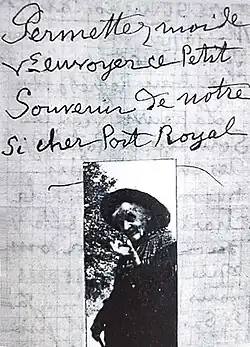 Permettez moi de
v. Eenvoyer ce Petit
Souvenir de notre
Si cher Port Royal